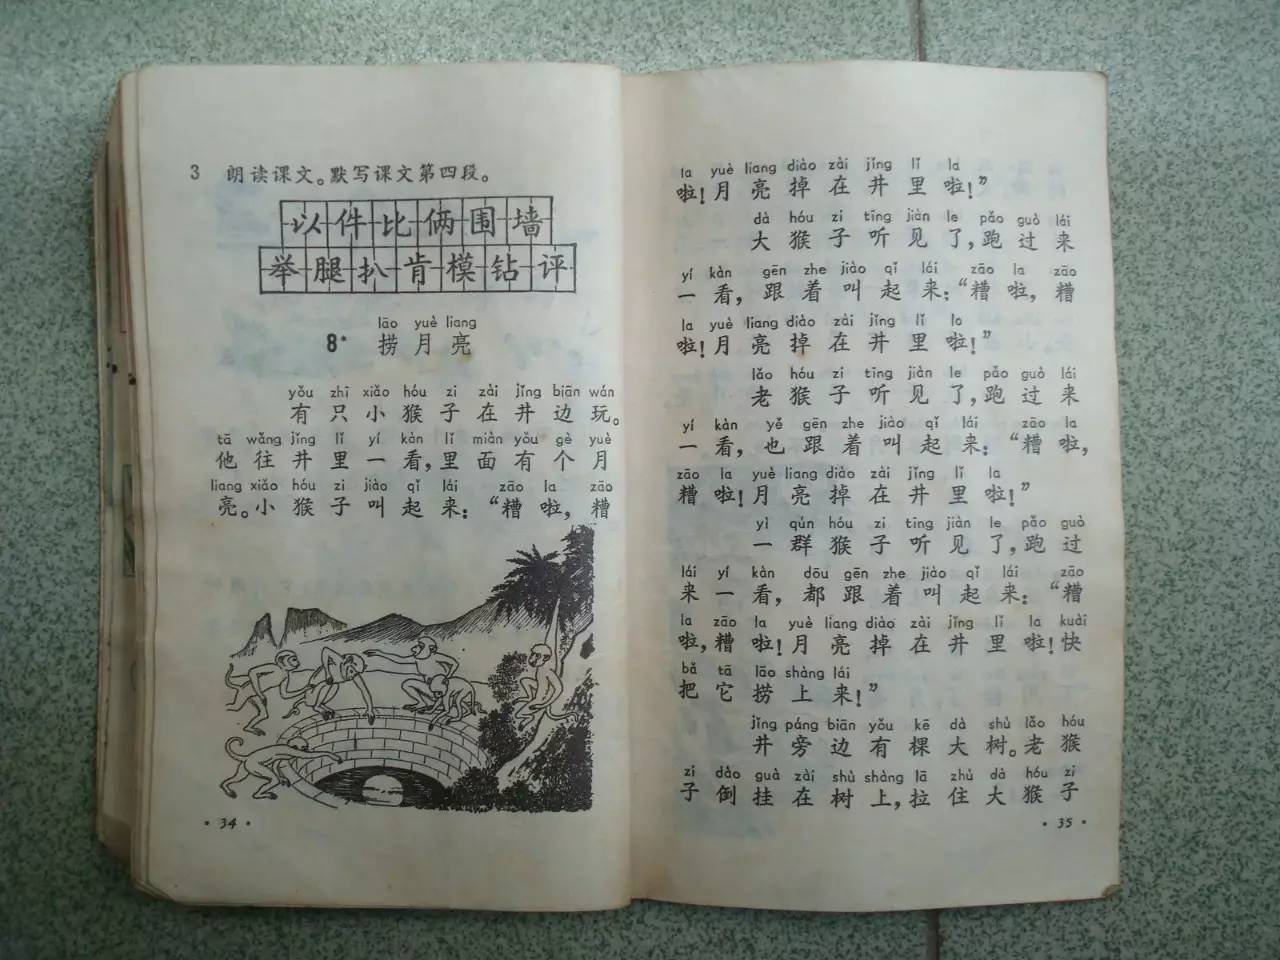 3 朗读课文。默写课文第四段。
以件比俩围墙
举腿扒肯模钻评
lāo yuè liang
8* 捞月亮
yǒu zhī xiǎo hóu zi zài jǐng biān wán
有只小猴子在井边玩。
tā wǎng jǐng lǐ yí kàn lǐ miàn yǒu gè yuè
他往井里一看,里面有个月
liang xiǎo hóu zi jiào qǐ lái zāo la zāo
亮。小猴子叫起来:“糟啦,糟
· 34 ·
la yuè liang diào zài jǐng lǐ la
啦!月亮掉在井里啦!”
dà hóu zi tīng jiàn le pǎo guò lái
大猴子听见了,跑过来
yí kàn gēn zhe jiào qǐ lái zāo la zāo
一看,跟着叫起来:“糟啦,糟
la yuè liang diào zài jǐng lǐ la
啦!月亮掉在井里啦!”
lǎo hóu zi tīng jiàn le pǎo guò lái
老猴子听见了,跑过来
yí kàn yě gēn zhe jiào qǐ lái zāo la
一看,也跟着叫起来:“糟啦,
zāo la yuè liang diào zài jǐng lǐ la
糟啦!月亮掉在井里啦!”
yì qún hóu zi tīng jiàn le pǎo guò
一群猴子听见了,跑过
lái yí kàn dōu gēn zhe jiào qǐ lái zāo
来一看,都跟着叫起来:“糟
la zāo la yuè liang diào zài jǐng lǐ la kuài
啦,糟啦!月亮掉在井里啦!快
bǎ tā lāo shàng lái
把它捞上来!”
jǐng páng biān yǒu kē dà shù lǎo hóu
井旁边有棵大树。老猴
zi dào guà zài shù shàng lā zhù dà hóu zi
子倒挂在树上,拉住大猴子
· 35 ·